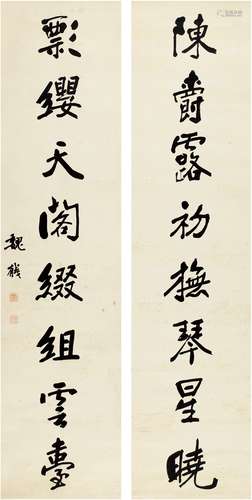 陳爵露初撫琴星曉
飄纓天閣綴組雲臺
魏戫